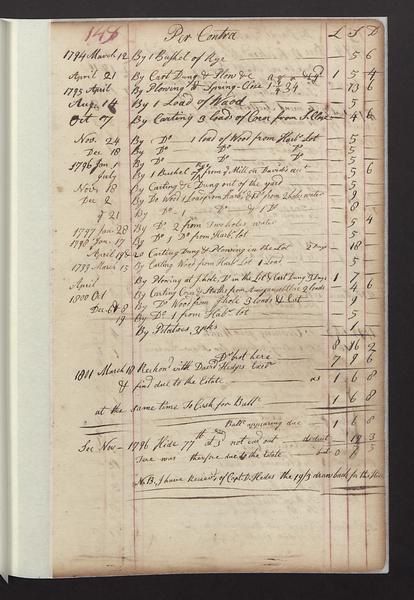 148 Per Contra L S D
1794 March 12 By 1 Bushel of Rye 5 6
April 21 By Cart Dung & Plow &c 1 5 4
1795 April By Plowing Spring-Close 13 6
Aug. 14 By 1 Load of Wood 5
Oct 07 By Carting 3 load of Corn from 4 6
Nov. 24 By Do 1 load of Wood from Harb. Lot 5
Dec 18 By Do Do Do 5
1796 Jan 1 By Do Do Do 5
July By 1 Bushel Rye from Mill on Davids acct 5 6
Nov. 18 By Carting Dung out of the yard 5
Dec 2 By Do Wood 1 Load from Harb. & Do from 2 holes water 9
21 By Do Do & 1 Do 8
1797 Jan 28 By Do 2 from Two holes water 5 4
1798 Jan. 17 By Do 1 Do from Harb. lot 5
April 19 & 20 Carting Dung & Plowing in the Lot
1799 March 15 By Carting Wood from Harb. Lot 1 Load 5
April By Plowing at Do in the Lot & Cart Dung 2 Days 1 7
1800 Oct By Carting Corn & Stalks from 2 loads 4 6
Dec 6 & 8 By Do Wood from hole 3 loads & Cut 9
19 By Do 1 from Hab. lot 5
By Potatoes, 1
8 16 2
Do bot here 7 9 6
1801 March 18 Reckond with David Hedges Exor
& find due to the Estate as 1 6 8
at the same time To Cash for Ball. 1 6 8
Ball. appearing due 1 6 8
See Nov 1796 Hide 77 lb at 3d not carr out deduct 19 3
There was therefore due to the Estate but 0 7 5
N.B. I have Received of Capt. D. Hedges the 19/3 drawn back for the Hide